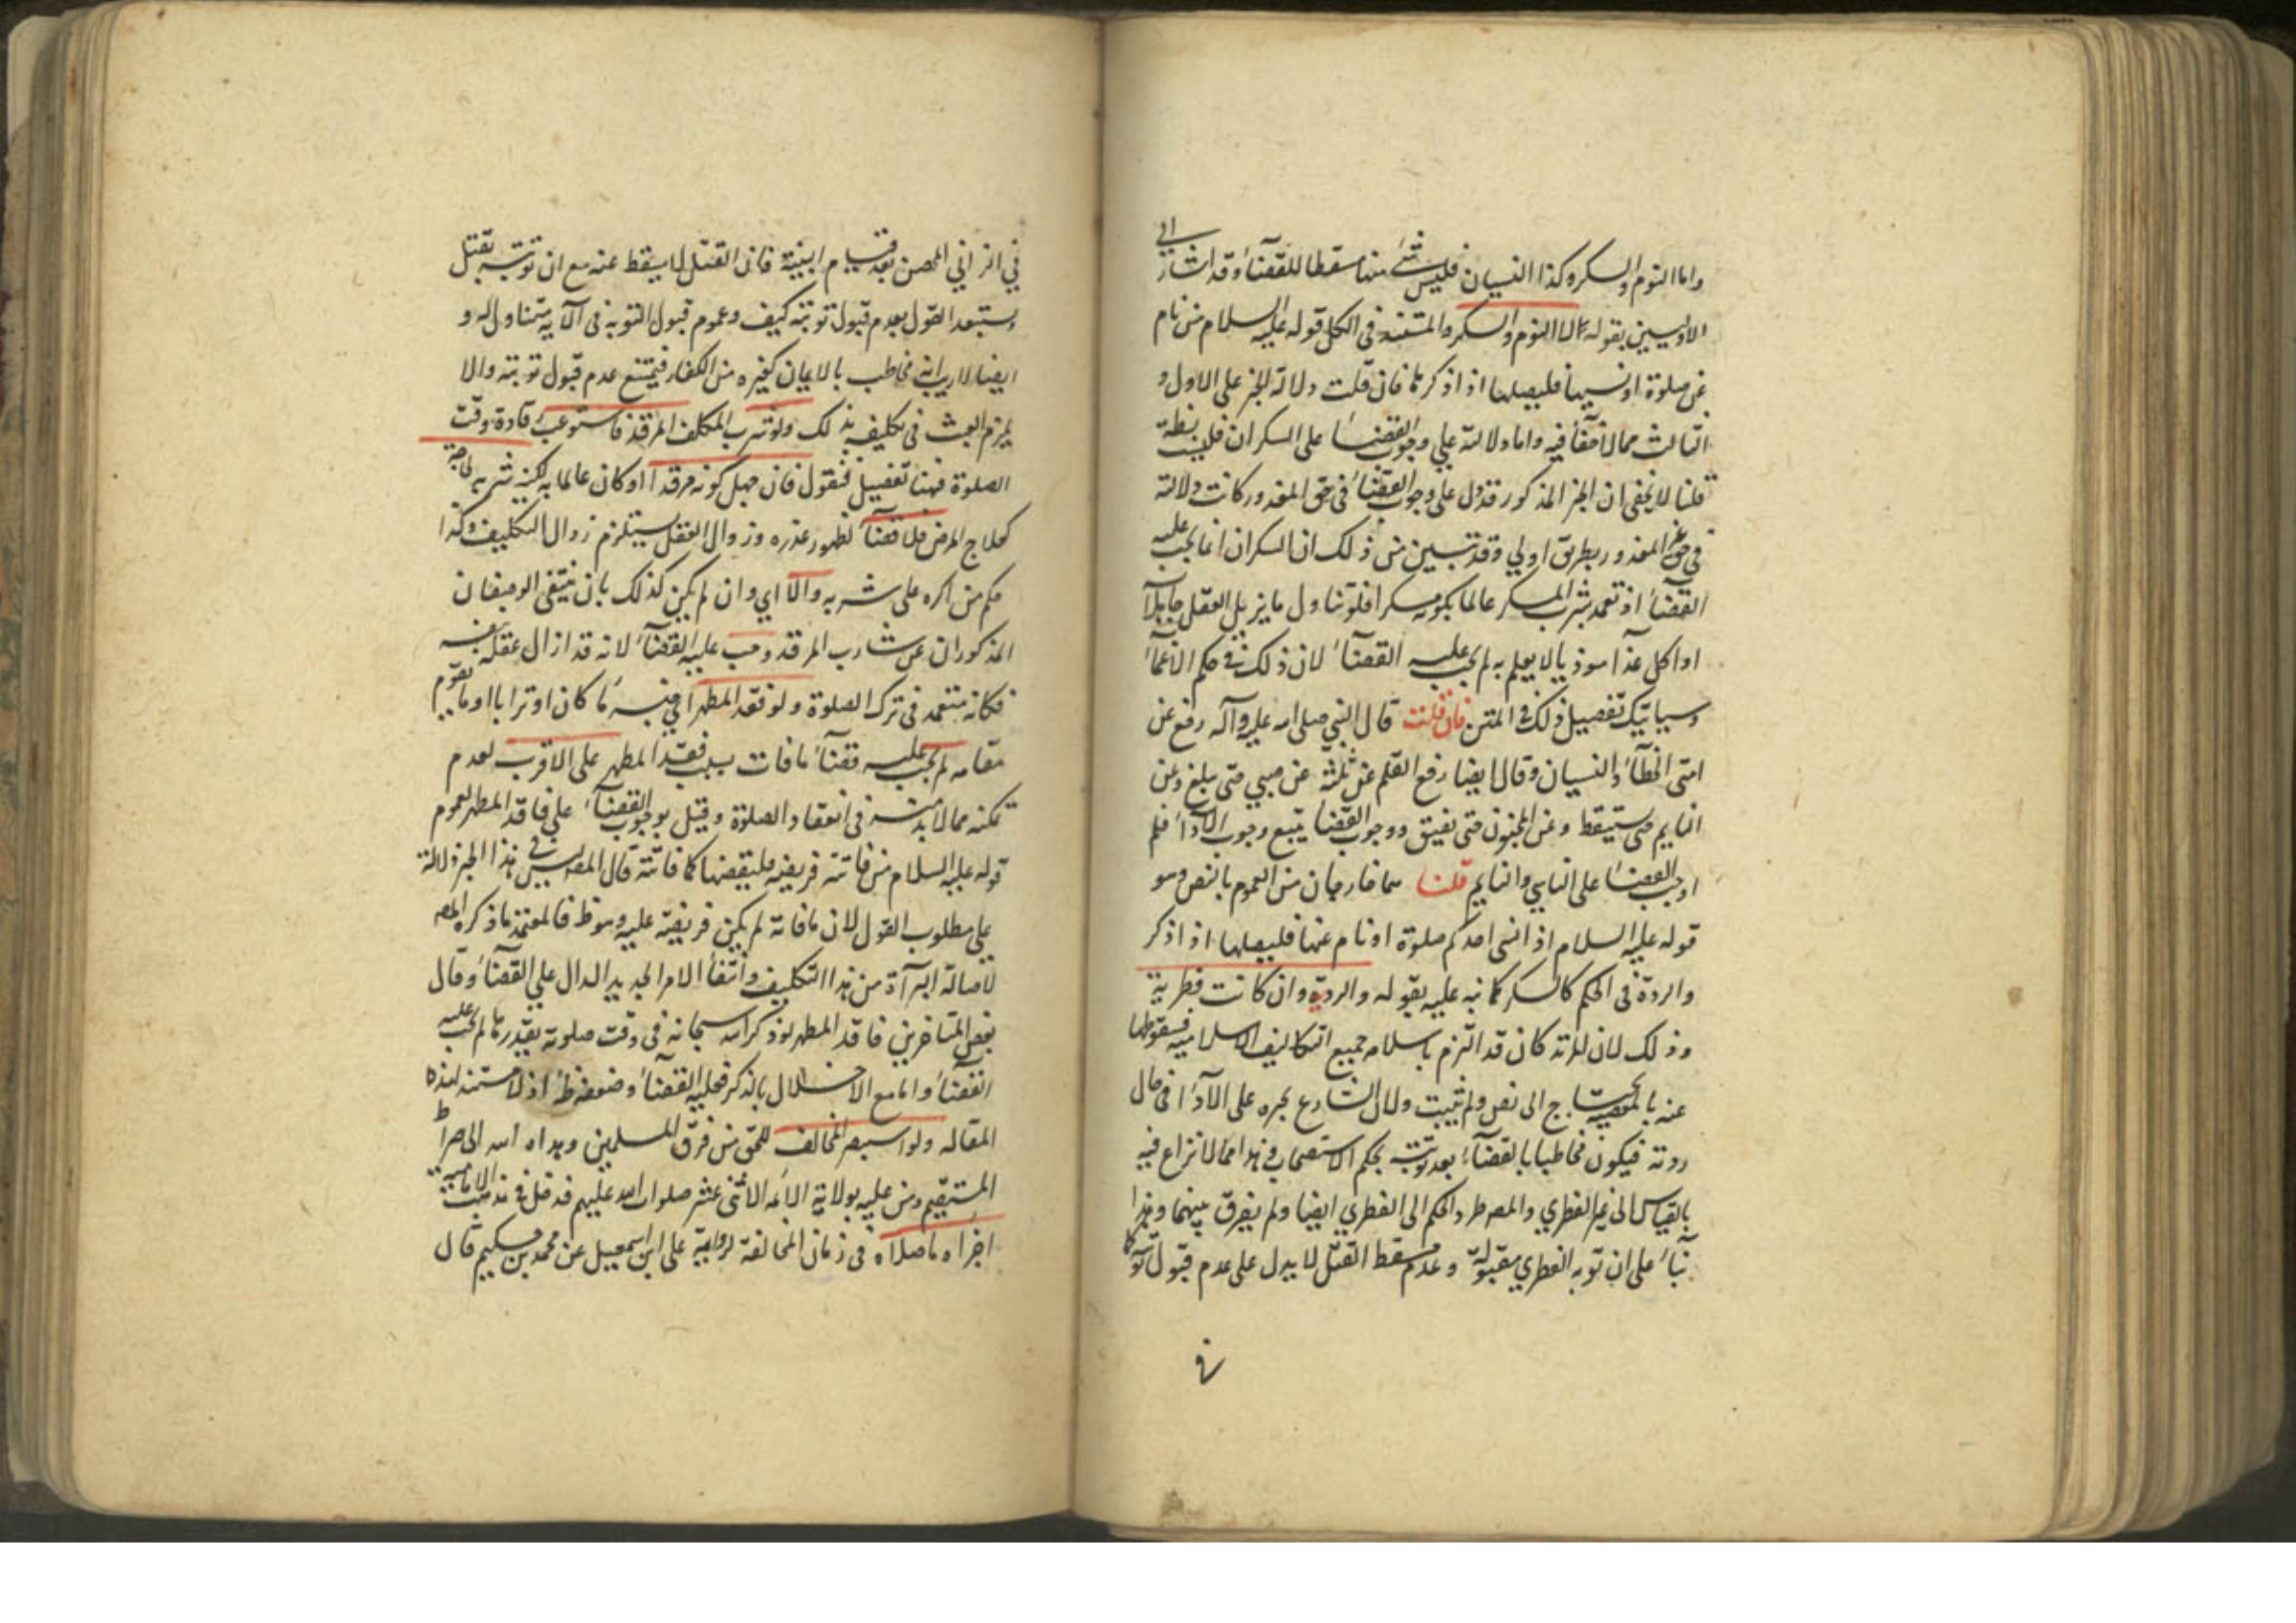 واما النوم والسكر وكذا النسيان فليس شئ منها مسقطا للقضآء وقد اشار الى
الاوليين بقوله الا النوم والسكر والمستند فى الكل قوله عليه السلام من نام
عن صلوة او نسيها فليصلها اذا ذكرها فان قلت دلالة الخبر على الاول و
الثالث مما لا خفآء فيه واما دلالته على وجوب القضآء على السكران فليست بظة
قلنا لا يخفى ان الخبر المذكور قد دل على وجوب القضآء فى حق المعذور كانت دلالته
فى حق غير المعذور بطريق اولى وقد تبين من ذلك ان السكران انما يجب عليه
القضآء اذ تعمد شرب المسكر عالما بكونه مسكرا فلو تناول ما يزيل العقل جاهلا
او اكل غذآء موذيا لا يعلم به لم يجب عليه القضآء لان ذلك فى حكم الاغمآء
وسياتيك تفصيل ذلك فى المتن فان قلت قال النبي صلى الله عليه وآله رفع عن
امتى الخطآء والنسيان وقال ايضا رفع القلم عن ثلثة عن صبي حتى يبلغ وعن
النايم حتى يستيقظ وعن المجنون حتى يفيق ووجوب القضآء يتبع وجوب الادآء فلم
اوجب القضآء على الناسي والنايم قلنا هما خارجان من العموم بالنص وهو
قوله عليه السلام اذا نسى احدكم صلوة او نام عنها فليصلها اذا ذكر
والردة فى الحكم كالسكر كما نبه عليه بقوله والردة وان كانت فطرية
وذلك لان المرتد كان قد التزم باسلامه جميع التكاليف الاسلامية فسقوطها
عنه بالمعصية يحتاج الى نص ولم يثبت ولان الشارع يجبره على الآدآء فى حال
ردته فيكون مخاطبا بالقضآء بعد توبته بحكم الاستصحاب وهذا مما لا نزاع فيه
بالقياس الى غير الفطري والمصه طرد الحكم الى الفطري ايضا ولم يفرق بينهما وهذا
بنآء على ان توبة الفطري مقبولة وعدم سقط القتل لا يدل على عدم قبول توبته كما
فى
في الزاني المحصن بعد قيام البينة فان القتل لا يسقط عنه مع ان توبته تقبل
ويستبعد القول بعدم قبول توبته كيف وعموم قبول التوبة فى الآية يتناوله و
ايضا لا ريب انه مخاطب بالايمان كغيره من الكفار فيمتنع عدم قبول توبته والا
يلزم العبث فى تكليفه بذلك ولو شرب المكلف المرقد فاستوعب رقاده وقت
الصلوة فهنا تفصيل فنقول فان جهل كونه مرقدا او كان عالما به لكنه شربه لحاجة
كعلاج المرض فلا قضآء لظهور عذره وزوال العقل يستلزم زوال التكليف وكذا
حكم من اكره على شربه والا اي وان لم يكن كذلك بان ينتفى الوصفان
المذكوران عن شارب المرقد وجب عليه القضآء لانه قد ازال عقله بنفسه
فكانه متعمد فى ترك الصلوة ولو فقد المطهر اي جنسه مآء كان او ترابا او ما يقوم
مقامه لم يجب عليه قضآء ما فات بسبب فقد المطهر على الاقرب لعدم
تمكنه مما لا بد منه فى انعقاد الصلوة وقيل بوجوب القضآء على فاقد المطهر لعموم
قوله عليه السلام من فاتته فريضة فليقضها كما فاتته قال المصه ليس فى هذا الخبر دلالة
على مطلوب القول لان ما فاته لم يكن فريضة عليه وهو ظ فالمعتمد ما ذكره المصه
لاصالة البرآءة من هذا التكليف وانتفآء الامر الجديد الدال على القضآء وقال
بعض المتاخرين فاقد المطهر لو ذكر الله سبحانه فى وقت صلوته بقدرها لم يجب عليه
القضآء واما مع الاخلال بالذكر فعليه القضآء وضعفه ظ اذ لا مستند لهذه
المقالة ولو استبصر المخالف للحق من فرق المسلمين وهداه الله الى صراط
المستقيم ومن عليه بولاية الائمة الاثنى عشر صلوات الله عليهم فدخل فى مذهب الامامية
اجزأه ما صلاه فى زمان المخالفة لرواية على ابن اسمعيل عن محمد بن حكيم قال